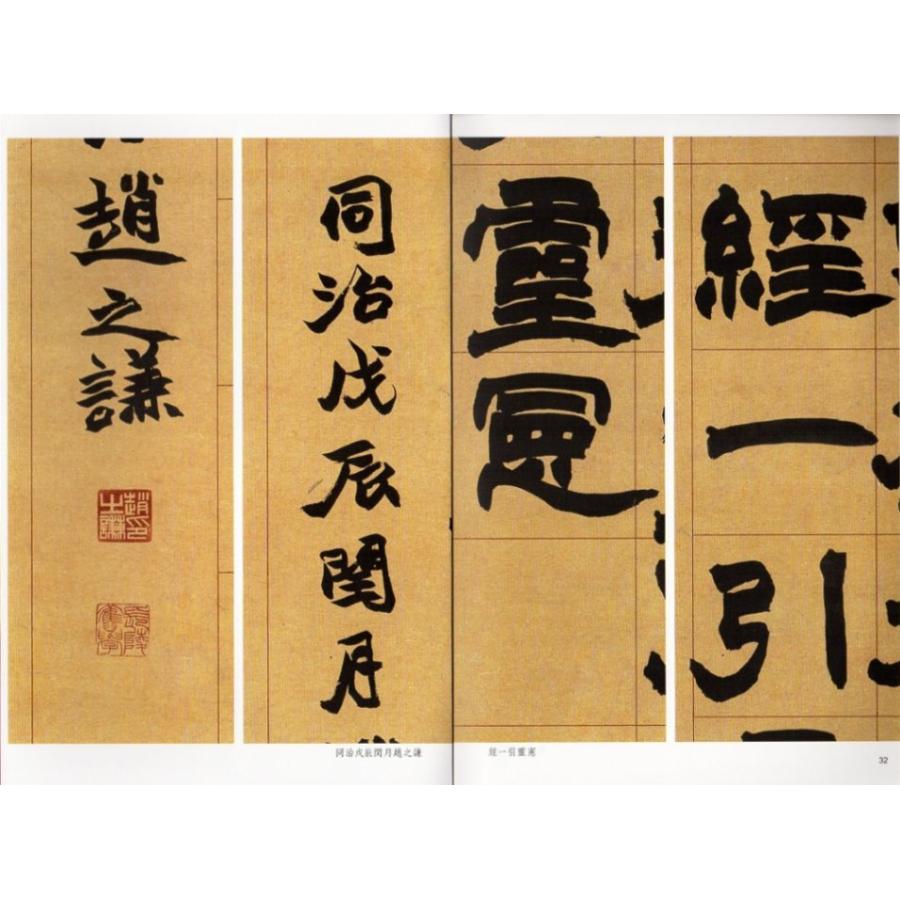 經一引
靈憲
同治戊辰閏月
趙之謙
趙之謙印
經一引靈憲
同治戊辰閏月趙之謙
32